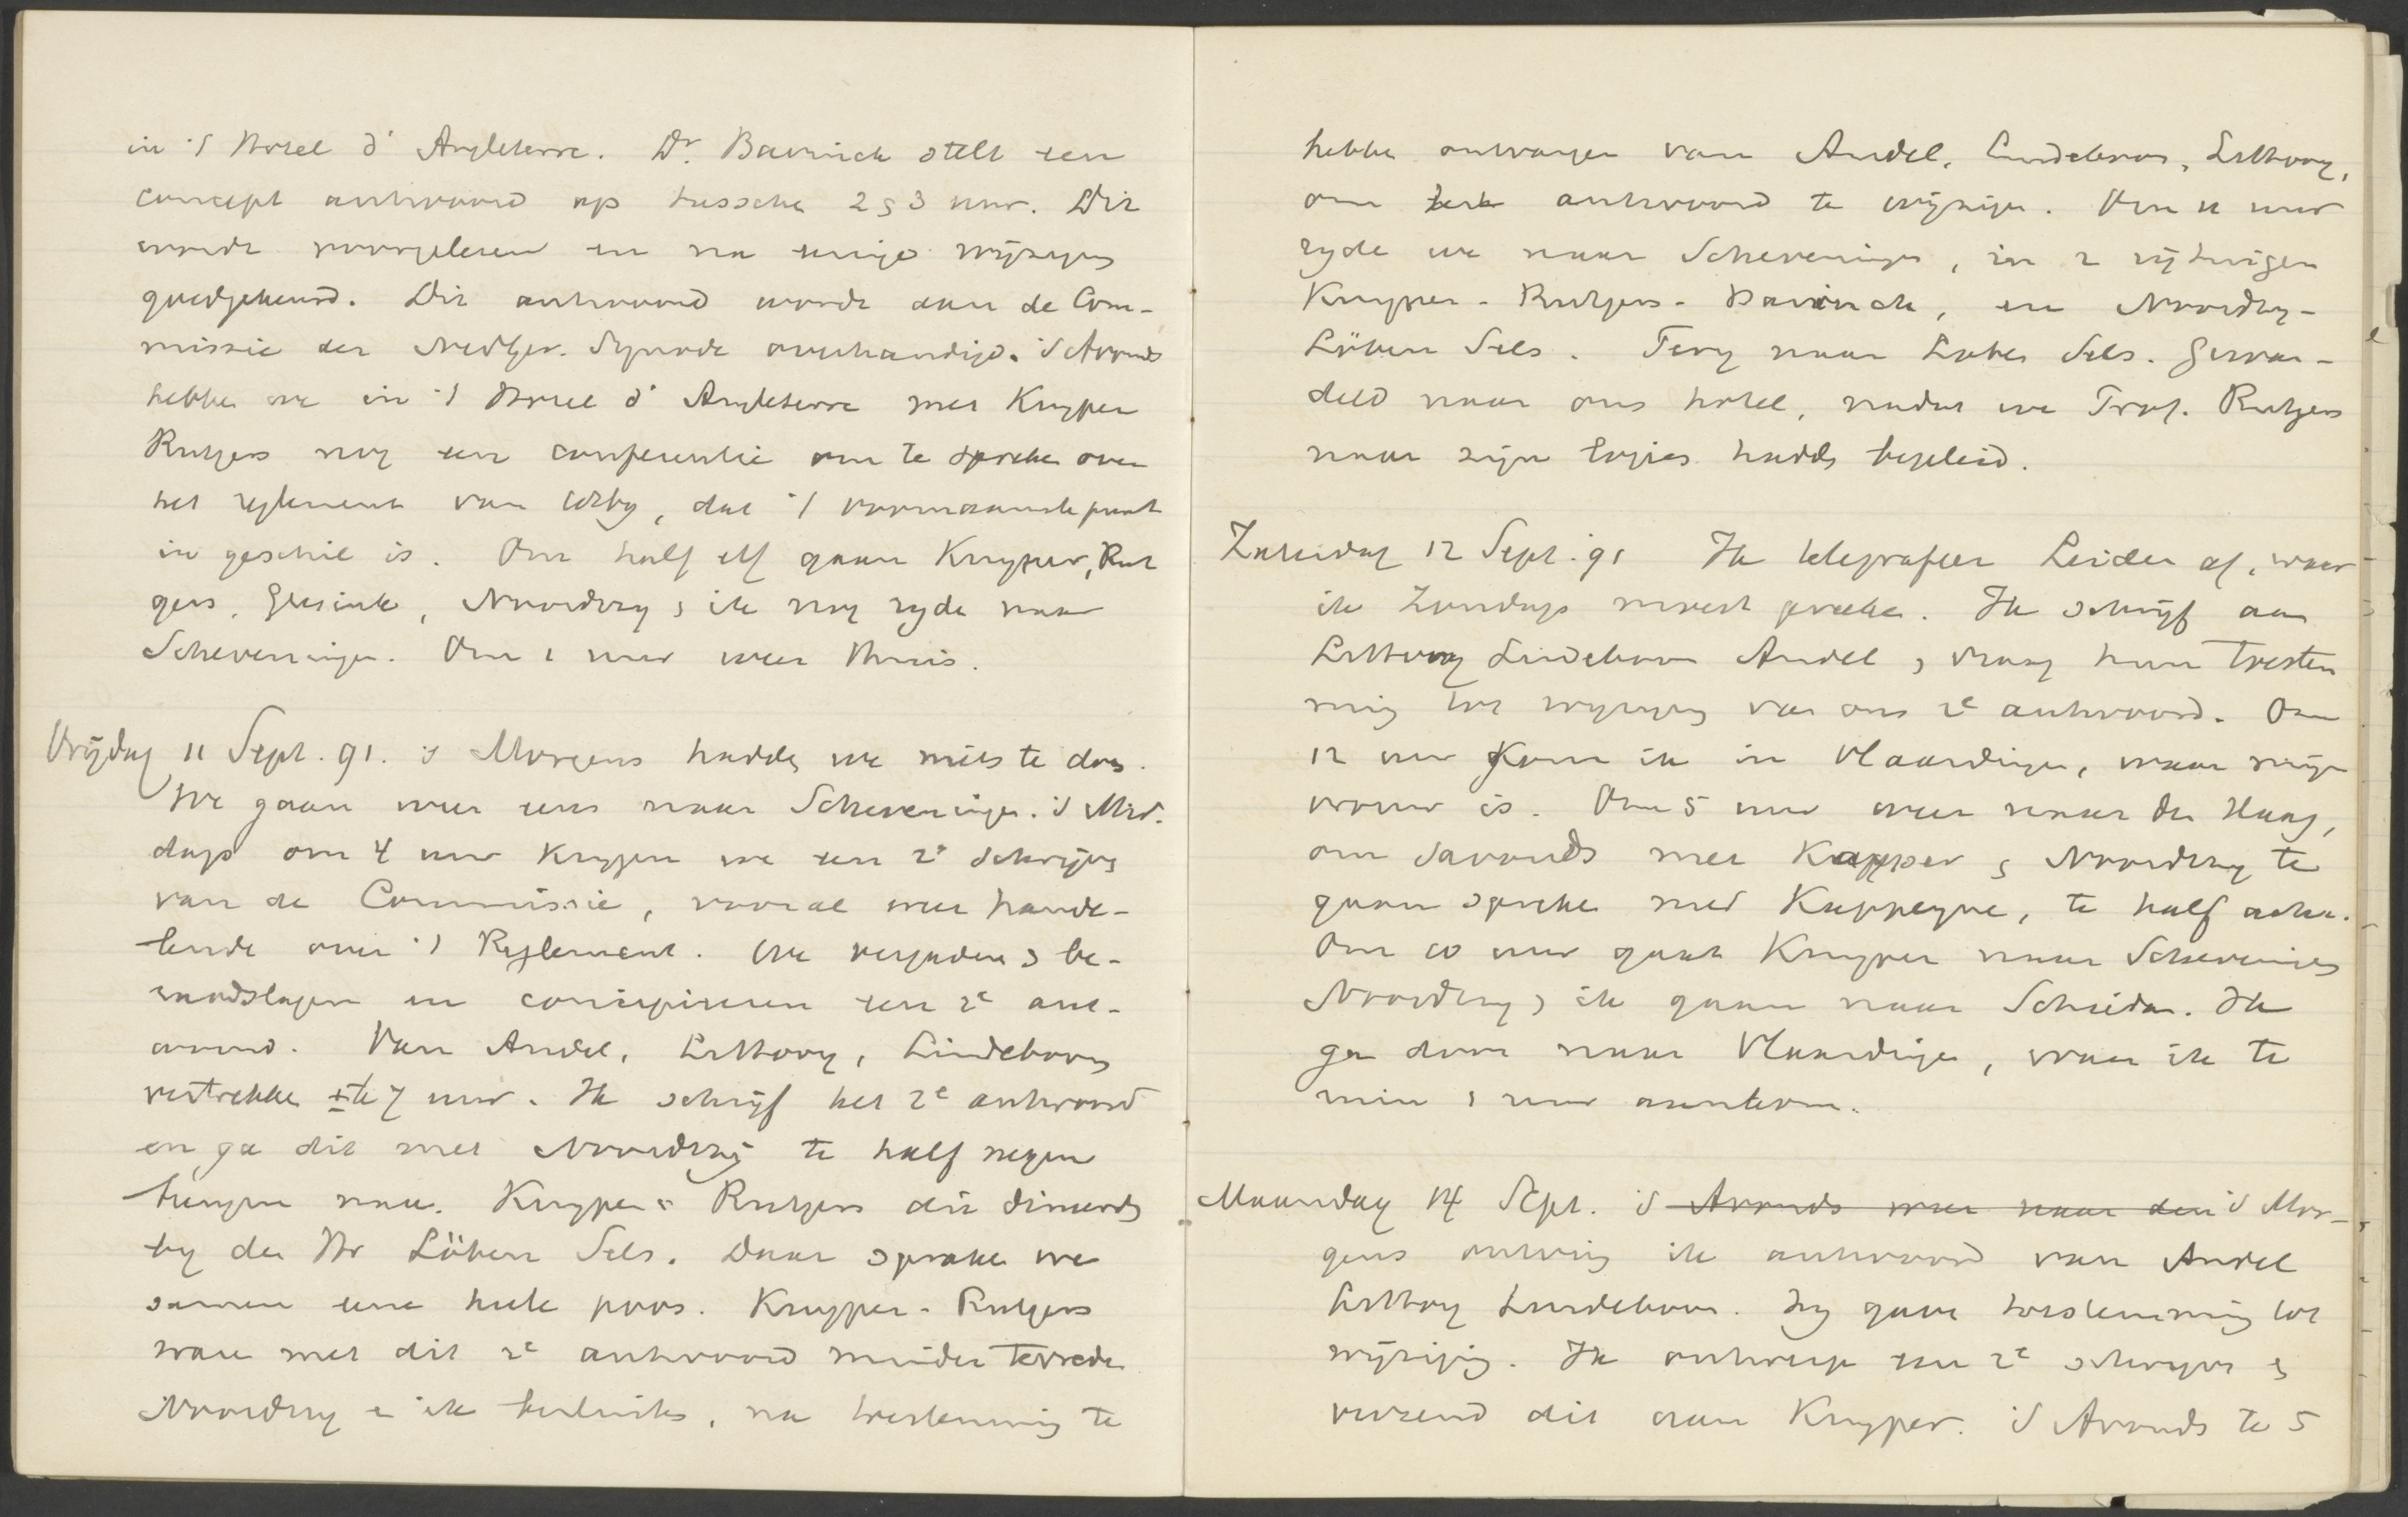 in 't Hotel d' Angleterre. Dr. Bavinck stelt een
concept antwoord op tussche 2 & 3 uur. Dit
wordt voorgelezen en na eenige wijzigng
goedgekeurd. Dit antwoord wordt aan de Com-
missie der Nedger. Synode overhandigd. 's Avonds
hebbe we in 't Hotel d' Angleterre met Kuyper
Rutgers nog een conferentie om te spreke over
het reglement van 1869, dat 't voornaamste punt
in geschil is. Om half elf gaan Kuyper, Rut
gers, Gesink, Noordtzy & ik nog ryde naar
Scheveninge. Om 1 uur weer thuis.
Vrijdag 11 Sept. 91. 's Morgens hadde we niets te doen.
We gaan weer eens naar Scheveninge. 's Mid.
dags om 4 uur krygen we een 2e schrijvg
van de Commissie, vooral weer hande-
lende over 't Reglement. We vergadere & be-
raadslagen en concipieeren een 2e ant-
woord. Van Andel, Littooy, Lindeboom
vertrekke ± te 7 uur. Ik schrijf het 2e antwoord
en ga dit met Noordtzij te half negen
brengen naar Kuyper & Rutgers die dineerde
by den Hr Löben Sels. Daar sprake we
samen eene heele poos. Kuyper - Rutgers
ware met dit 2e antwoord minder tevrede
Noordtzy & ik besluite, na toestemming te
hebbe ontvangen van Andel, Lindeboom, Littooy,
om antwoord te wijzige. Om 11 uur
ryde we naar Scheveninge, in 2 rijtuigen
Kuyper - Rutgers - Bavinck, en Noordtzy -
Löben Sels. Terug naar Lobe Sels. Gewan-
deld naar ons hotel, nadat we Prof. Rutgers
naar zijn logies hadde begeleid.
Zaturdag 12 Sept. 91 Ik telegrafeer Leiden af, waar
ik Zondags moest preeke. Ik schrijf aan
Littooy Lindeboom Andel & vraag hun toestem
ming tot wyzigng van ons 2e antwoord. Om
12 uur kom ik in Vlaardinge, waar mijn
vrouw is. Om 5 uur weer naar den Haag,
om savonds met Kuyper & Noordtzy te
gaan spreke met Kappeyne, te half acht.
Om 10 uur gaat Kuyper naar Scheveninge
Noordtzy & ik gaan naar Schiedam. Ik
ga door naar Vlaardinge, waar ik te
min 1 uur aankom.
Maandag 14 Sept. 's Avonds weer naar den 's Mor-
gens ontving ik antwoord van Andel
Littooy Lindeboom. Zy gave toestemming tot
wijziging. Ik ontwerp een 2e schryve &
verzend dit aan Kuyper. 's Avonds te 5